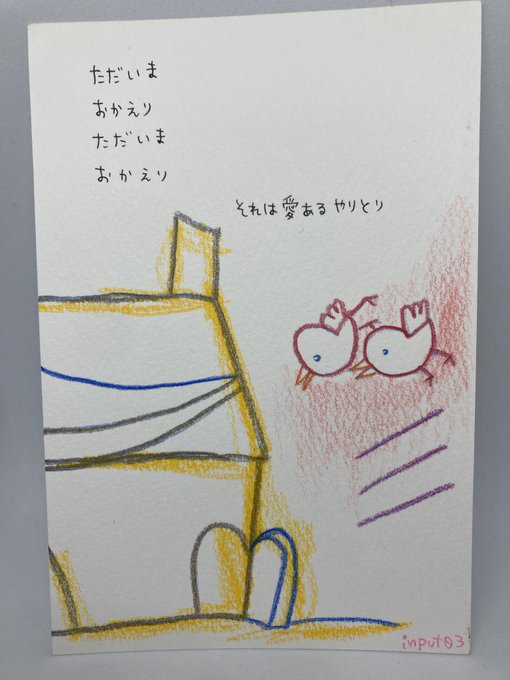 ただいま
おかえり
ただいま
おかえり
それは愛あるやりとり
input03